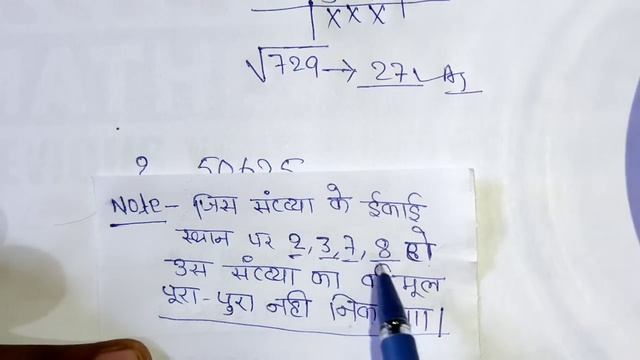 x x x
√729 → 27 Ans
Note - जिस संख्या के ईकाई
स्थान पर 2, 3, 7, 8 हो
उस संख्या का मूल
पूरा - पुरा नही